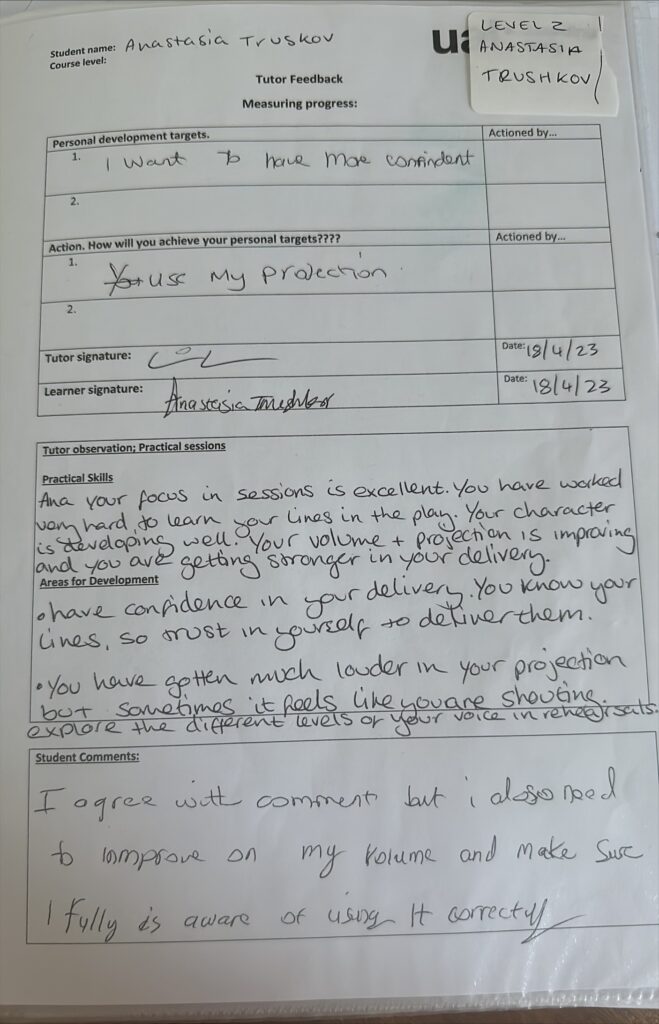 Student name: Anastasia Truskov
Course level:
ua
LEVEL 2
ANASTASIA
TRUSHKOV
Tutor Feedback
Measuring progress:
Personal development targets.
Actioned by...
1. I want to have more confindent
2.
Action. How will you achieve your personal targets????
Actioned by...
1. use my projection
2.
Tutor signature:
Date: 18/4/23
Learner signature: Anastasia Trushkov
Date: 18/4/23
Tutor observation; Practical sessions
Practical Skills
Ana your focus in sessions is excellent. You have worked
very hard to learn your lines in the play. Your character
is developing well. Your volume + projection is improving
and you are getting stronger in your delivery.
Areas for Development
• have confidence in your delivery. You know your
lines, so trust in yourself to deliver them.
• You have gotten much louder in your projection
but sometimes it feels like you are shouting.
explore the different levels of your voice in rehearsals.
Student Comments:
I agree with comment but i also need
to inmprove on my volume and make sure
I fully is aware of using it correctly